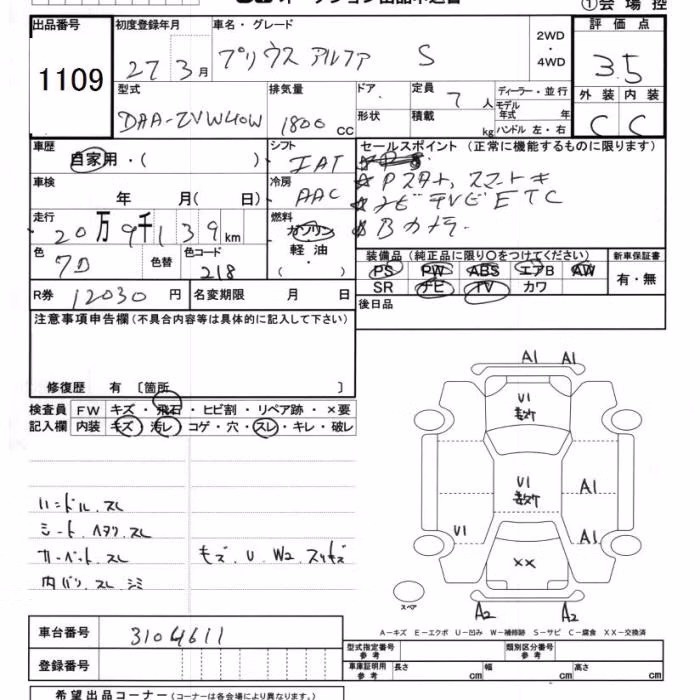 ①会場控
出品番号 初度登録年月 車名・グレード 2WD 評価点
1109 27年3月 プリウス アルファ S ・4WD 3.5
型式 排気量 ドア 定員 ディーラー・並行 外装 内装
DAA-ZVW40W 1800 CC 形状 積載 7人 モデル年式 年 C C
kg ハンドル 左・右
車歴 シフト セールスポイント (正常に機能するものに限ります)
自家用・( ) IAT
車検 冷房 ☆Pスタート、スマートキ
年 月( 日) AAC ☆ナビ テレビ ETC
走行 燃料 ☆Bカメラ
20万9千139km ガソリン
色 色替 色コード 軽油
218 ・( )
装備品 (純正品に限り○をつけてください) 新車保証書
PS PW ABS エアB AW 有・無
SR ナビ TV カワ
R券 12030円 名変期限 月 日 後日品
注意事項申告欄(不具合内容等は具体的に記入して下さい)
修復歴 有 〔箇所 〕
検査員 FW キズ・飛石・ヒビ割・リペア跡・×要
記入欄 内装 キズ・汚レ・コゲ・穴・スレ・キレ・破レ
A1 A1
U1
U1
A1
U1 A1
XX
A2 A2
ハンドル.スレ
シート.ヘタリ.スレ
カーペット.スレ
内バリ.スレ.シミ
キズ.U.W2.スリキズ
スペア
A－キズ E－エクボ U－凹み W－補修跡 S－サビ C－腐食 XX－交換済
車台番号 3104611
登録番号
型式指定番号 参考 類別区分番号 参考
車庫証明用 参考 長さ cm 幅 cm 高さ cm
希望出品コーナー (コーナーは各会場により異なります。)